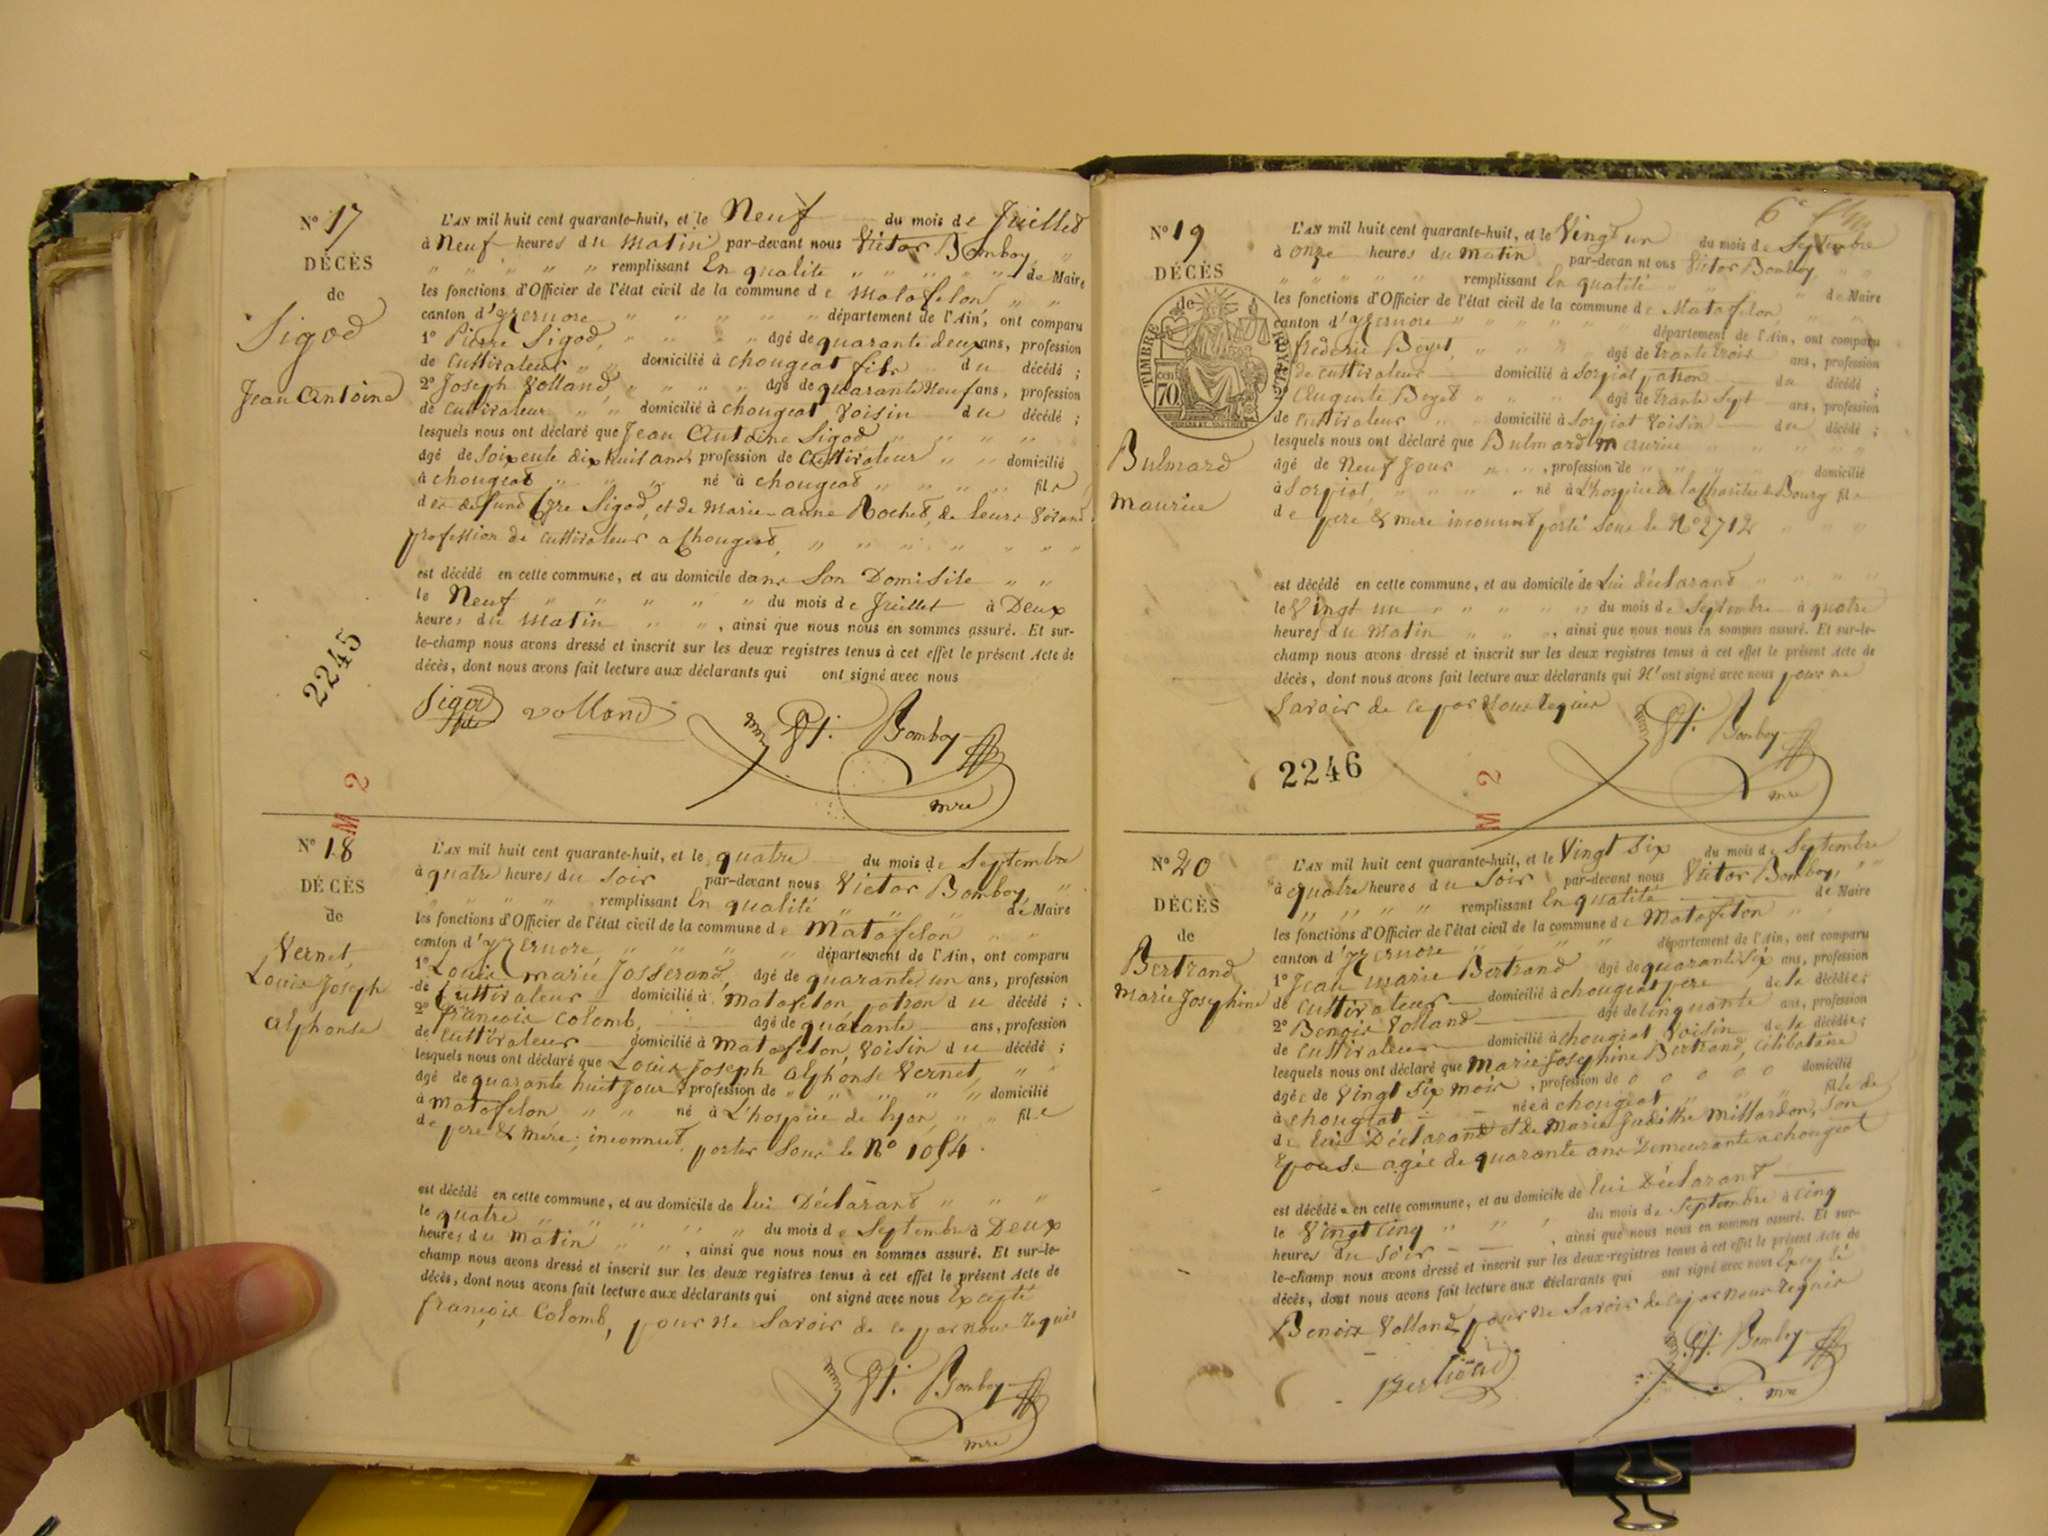 N° 17
DÉCÈS
de
Sigod
Jean Antoine
L'AN mil huit cent quarante-huit, et le Neuf du mois de Juillet
à Neuf heures du Matin par-devant nous Victor Bomboy, "
" " " " " remplissant En qualité " " " " " de Maire
les fonctions d'Officier de l'état civil de la commune de Matafelon " "
canton d'Yzernore " " " " " département de l'Ain, ont comparu
1° Pierre Sigod, " " " " âgé de quarante deux ans, profession
de Cultivateur " " domicilié à Chougeat fils du décédé ;
2° Joseph Volland " " " " âgé de quarante Neuf ans, profession
de Cultivateur " " domicilié à Chougeat Voisin du décédé ;
lesquels nous ont déclaré que Jean Antoine Sigod " " " "
âgé de Soixente dix huit ans profession de Cultivateur " " domicilié
à Chougeat " " " né à Chougeat " " " " fils
des defund Sigod, et de Marie-anne Rochet, de leurs Vivand
profession de Cultivateur a Chougeat, " " " " " " "
est décédé en cette commune, et au domicile dans Son Domisile " "
le Neuf " " " " " du mois de Juillet à Deux
heures du Matin " " , ainsi que nous nous en sommes assuré. Et sur-
le-champ nous avons dressé et inscrit sur les deux registres tenus à cet effet le présent Acte de
décès, dont nous avons fait lecture aux déclarants qui ont signé avec nous
Sigod fils Volland Bomboy
mre
2245
M 2
N° 18
DÉCÈS
de
Vernet,
Louis Joseph
Alphonse
L'AN mil huit cent quarante-huit, et le quatre du mois de Septembre
à quatre heures du Soir par-devant nous Victor Bomboy, "
" " " " remplissant En qualité " " " de Maire
les fonctions d'Officier de l'état civil de la commune de Matafelon " "
canton d'Yzernore " " " " " département de l'Ain, ont comparu
1° Louis marie Josserand, âgé de quarante un ans, profession
de Cultivateur domicilié à Matafelon patron du décédé ;
2° François Colomb, âgé de quarante ans, profession
de Cultivateur domicilié à Matafelon, Voisin du décédé ;
lesquels nous ont déclaré que Louis Joseph Alphonse Vernet, " "
âgé de quarante huit Jours, profession de " " " " " domicilié
à Matafelon " " né à L'hospice de Lyon, " " fils
de pere & mére, inconnut, porter Sous le N° 1054.
est décédé en cette commune, et au domicile de lui Déclarant " " "
le quatre " " " " " du mois de Septembre à Deux
heures du Matin " " , ainsi que nous nous en sommes assuré. Et sur-le-
champ nous avons dressé et inscrit sur les deux registres tenus à cet effet le présent Acte de
décès, dont nous avons fait lecture aux déclarants qui ont signé avec nous Excepté
François Colomb, pour Ne Savoir de ce par Nous Requis
Bomboy
mre
N° 19
DÉCÈS
de
TIMBRE ROYAL
70 cen
Bulmard
Maurice
L'AN mil huit cent quarante-huit, et le Vingt un du mois de Septembre
à onze heures du matin par-devan nt ous Victor Bomboy, " "
" " " " " remplissant En qualité " " " " de Maire
les fonctions d'Officier de l'état civil de la commune de Matafelon " "
canton d'Yzernore " " " " " département de l'Ain, ont comparu
Fréderic Beyet, " " " " âgé de trante trois ans, profession
de Cultivateur domicilié à Sorpiat patron du décédé ;
Auguste Beyet " " " " âgé de trante Sept ans, profession
de Cultivateur " domicilié à Sorpiat Voisin du décédé ;
lesquels nous ont déclaré que Bulmard Meurice " " " " "
âgé de Neuf Jour " " , profession de " " " " " domicilié
à Sorpiat, " " " " né à L'hospice de la Charité de Bourg fils
de pere & mere inconnut porté sous le N° 2712 " " "
est décédé en cette commune, et au domicile de Lui déclarand " " " "
le Vingt un " " " " " du mois de Septembre à quatre
heures du Matin " " " , ainsi que nous nous en sommes assuré. Et sur-le-
champ nous avons dressé et inscrit sur les deux registres tenus à cet effet le présent Acte de
décès, dont nous avons fait lecture aux déclarants qui N'ont signé avec nous pour ne
Savoir de ce par Nous Requis
Bomboy
mre
2246
M 2
N° 20
DÉCÈS
de
Bertrand
Marie Josephine
L'AN mil huit cent quarante-huit, et le Vingt Six du mois de Septembre
à quatre heures du Soir par-devant nous Victor Bomboy, " "
" " " " " remplissant En qualité de Maire
les fonctions d'Officier de l'état civil de la commune de Matafelon " "
canton d'Yzernore " " " " département de l'Ain, ont comparu
1° Jean Marie Bertrand âgé de quarante Six ans, profession
de Cultivateur domicilié à Chougeat pere de la décédée ;
2° Benoix Volland âgé de Cinquante ans, profession
de Cultivateur domicilié à Chougeat Voisin de la décédée ;
lesquels nous ont déclaré que Marie Josephine Bertrand, Célibataire
âgée de Vingt Six mois, profession de o o o o o domicilié
à Chougeat née à Chougeat " " " fille de
de lui Déclarand et de Marie Judithe Millardon, Son
Epouse agée de quarante ans Demeurante a Chougeat
est décédée en cette commune, et au domicile de lui Déclarant
le Vingt Cinq " " " du mois de Septembre à Cinq
heures du Soir , ainsi que nous nous en sommes assuré. Et sur-
le-champ nous avons dressé et inscrit sur les deux registres tenus à cet effet le présent Acte de
décès, dont nous avons fait lecture aux déclarants qui ont signé avec nous Excepté
Benoix Volland pour Ne Savoir de ce par nous Requis
Bertrand Bomboy
mre